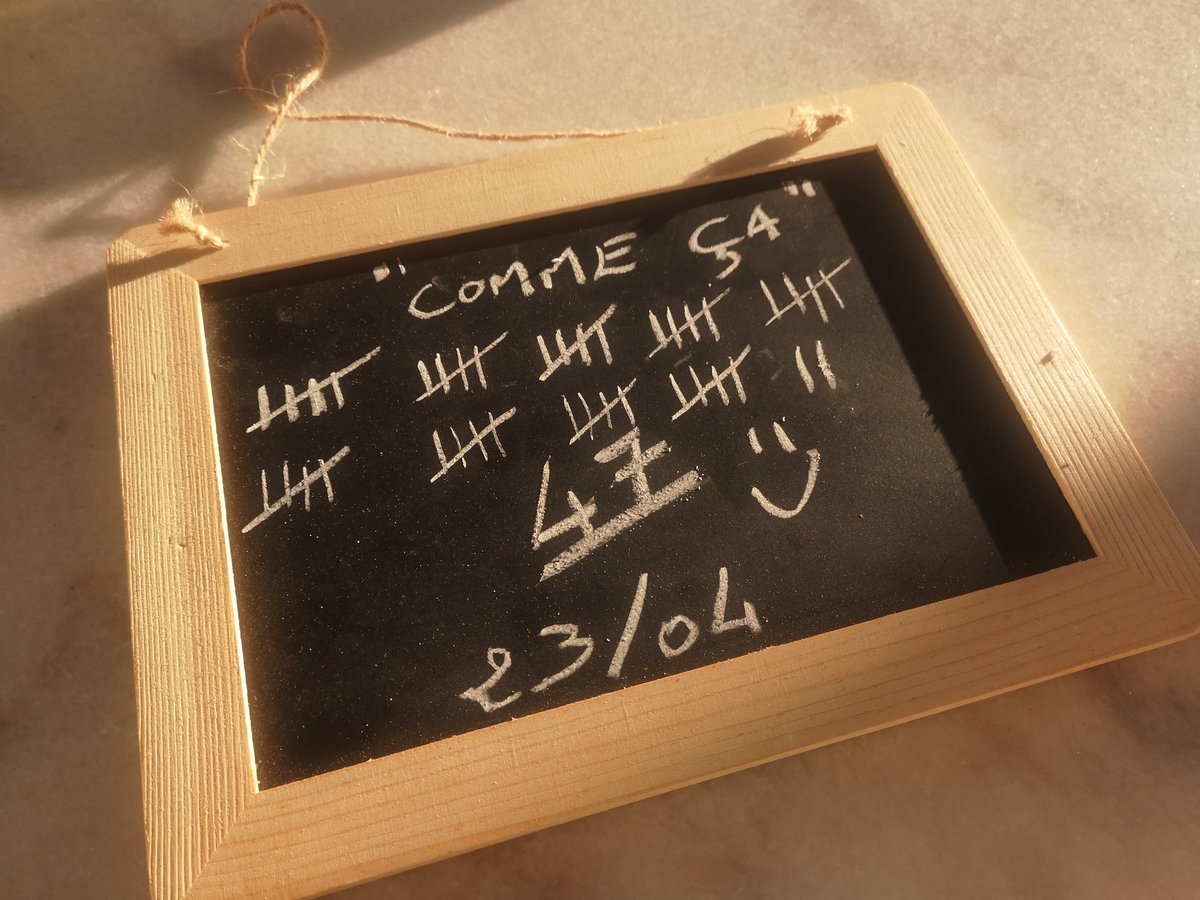 "COMME ÇA"
47
23/04